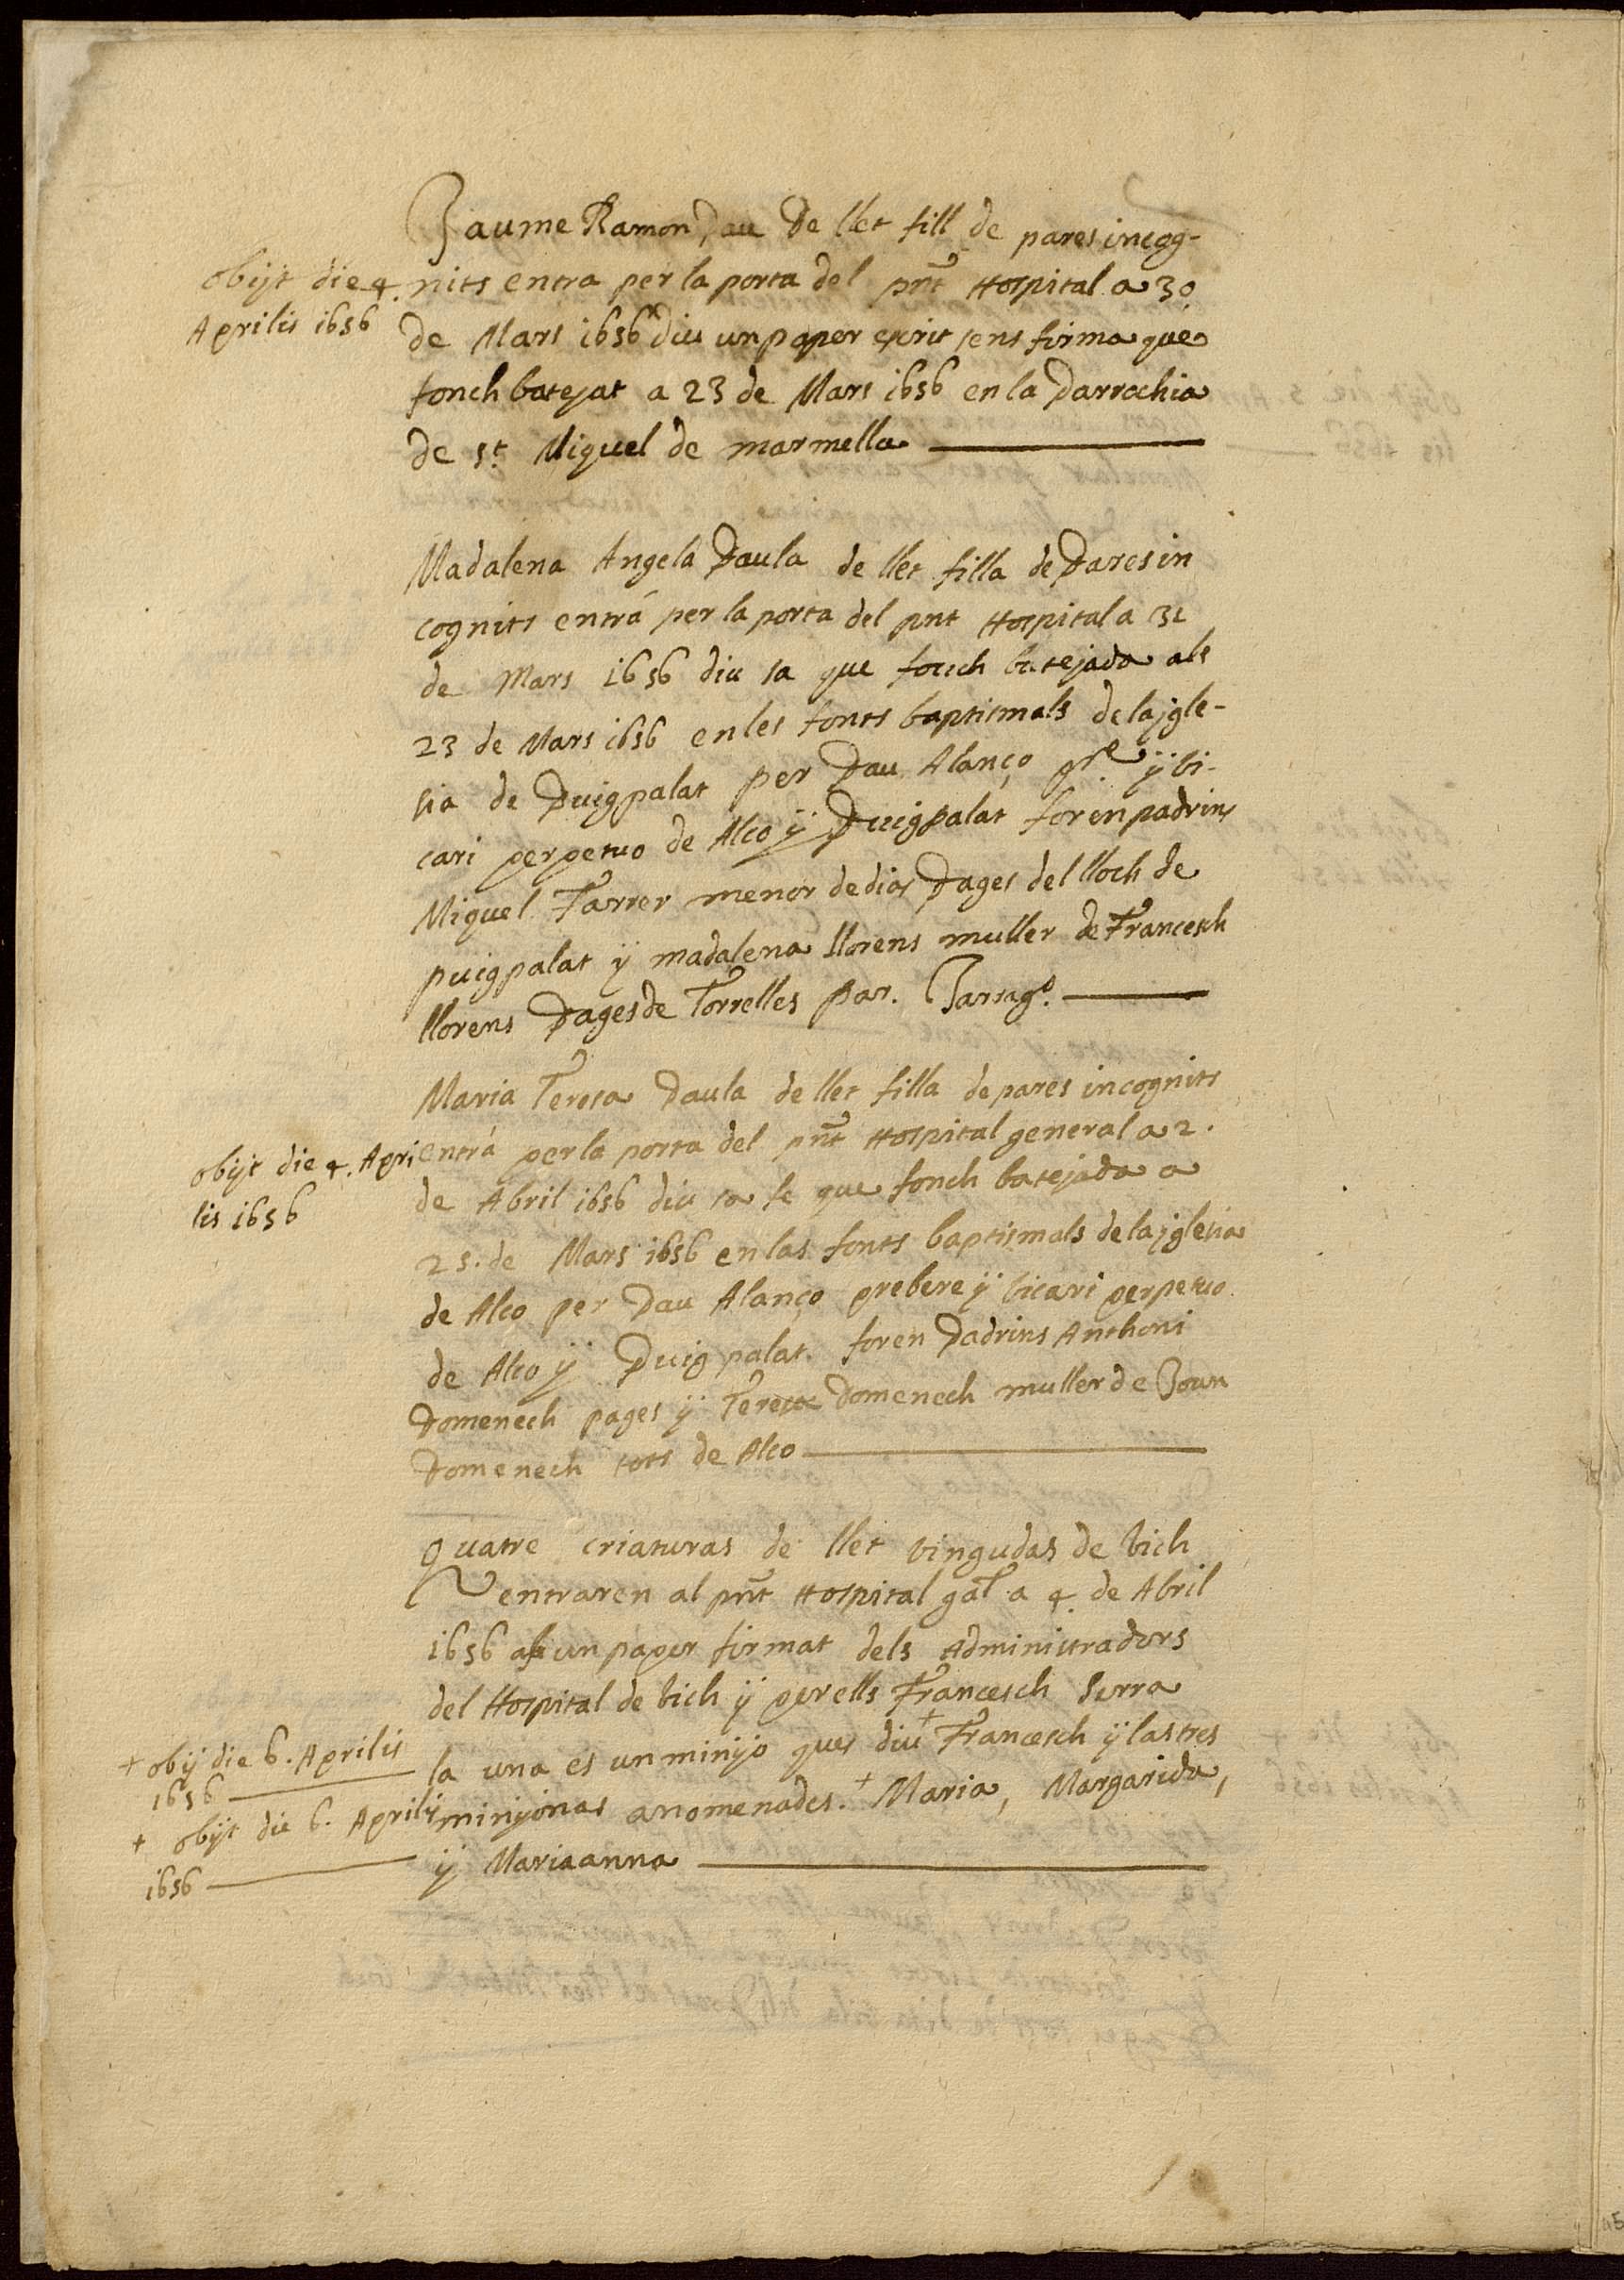 Jaume Ramon Pau de llet fill de pares incog-
obijt die 4.
Aprilis 1656
nits entra per la porta del pnt Hospital a 30
de Mars 1656 diu un paper escrit sens firma que
fonch batejat a 23 de Mars 1656 en la Parrochia
de st. Miquel de marmella
Madalena Angela Paula de llet filla de Pares in
cognits entrá per la porta del pnt Hospital a 31
de Mars 1656 diu sa que fouch batejada als
23 de Mars 1656 en les fonts baptismals de la jgle-
sia de Puigpalat per Pau Alanço pre ÿ bi-
cari perpetuo de Alco ÿ Puigpalat foren padrins
Miquel Farrer menor de dias Pages del lloch de
puigpalat ÿ madalena llorens muller de Francesch
llorens Pages de Torrelles par. Tarrago.
Maria Teresa Paula de llet filla de pares incognits
obijt die 4. Apri
lis 1656
entrá per la porta del pnt Hospital general a 2.
de Abril 1656 diu sa fe que fonch batejada a
25. de Mars 1656 en las fonts baptismals de la jglesia
de Alco per Pau Alanço prebere ÿ bicari perpetuo
de Alco ÿ Puig palat foren Padrins Anthoni
Domenech pages ÿ Teresa Domenech muller de Joan
Domenech tots de Alco
Quatre criaturas de llet vingudas de bich
entraren al pnt Hospital gal a 4. de Abril
1656 ab un paper firmat dels Administradors
del Hospital de bich ÿ per ells Francesch Serra
+ obij die 6. Aprilis
1656
la una es un minyo ques diu + Francesch ÿ las tres
+ obijt die 6. Aprilis
1656
minyonas anomenades. + Maria, Margarida,
ÿ Mariaanna